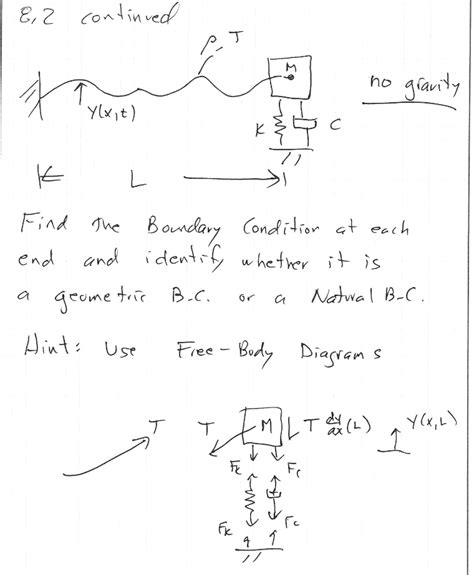 8.2 continued
ρ, T
M
no gravity
Y(x,t)
K
C
L
Find the Boundary Condition at each
end and identify whether it is
a geometric B.C. or a Natural B-C.
Hint: Use Free-Body Diagrams
T
T
M
T dy/dx (L)
Y(x,L)
Fk
Fc
Fk
Fc